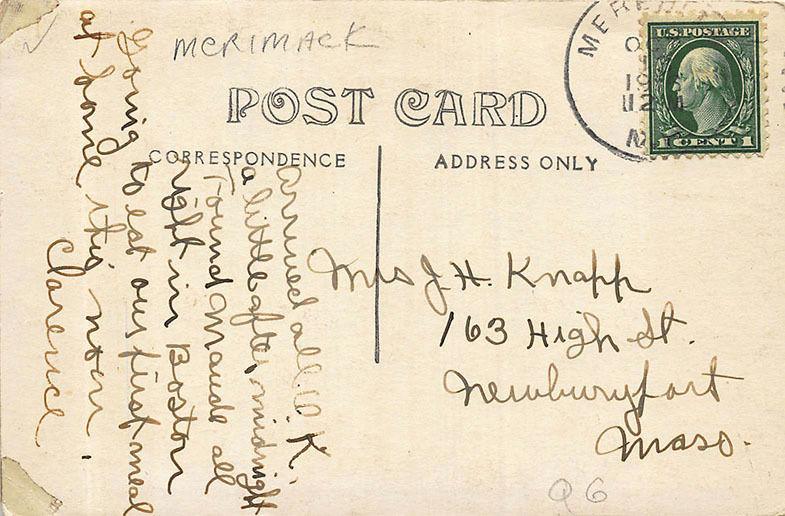 MCRIMACK
POST CARD
CORRESPONDENCE
ADDRESS ONLY
U.S. POSTAGE
1 CENT 1
Arrived all O.K.
a little after midnight
Found Maude all
right in Boston
Going to eat our first meal
at home this noon.
Clarence
Mrs J. H. Knapp
163 High St.
Newburyport
Mass.
Q6